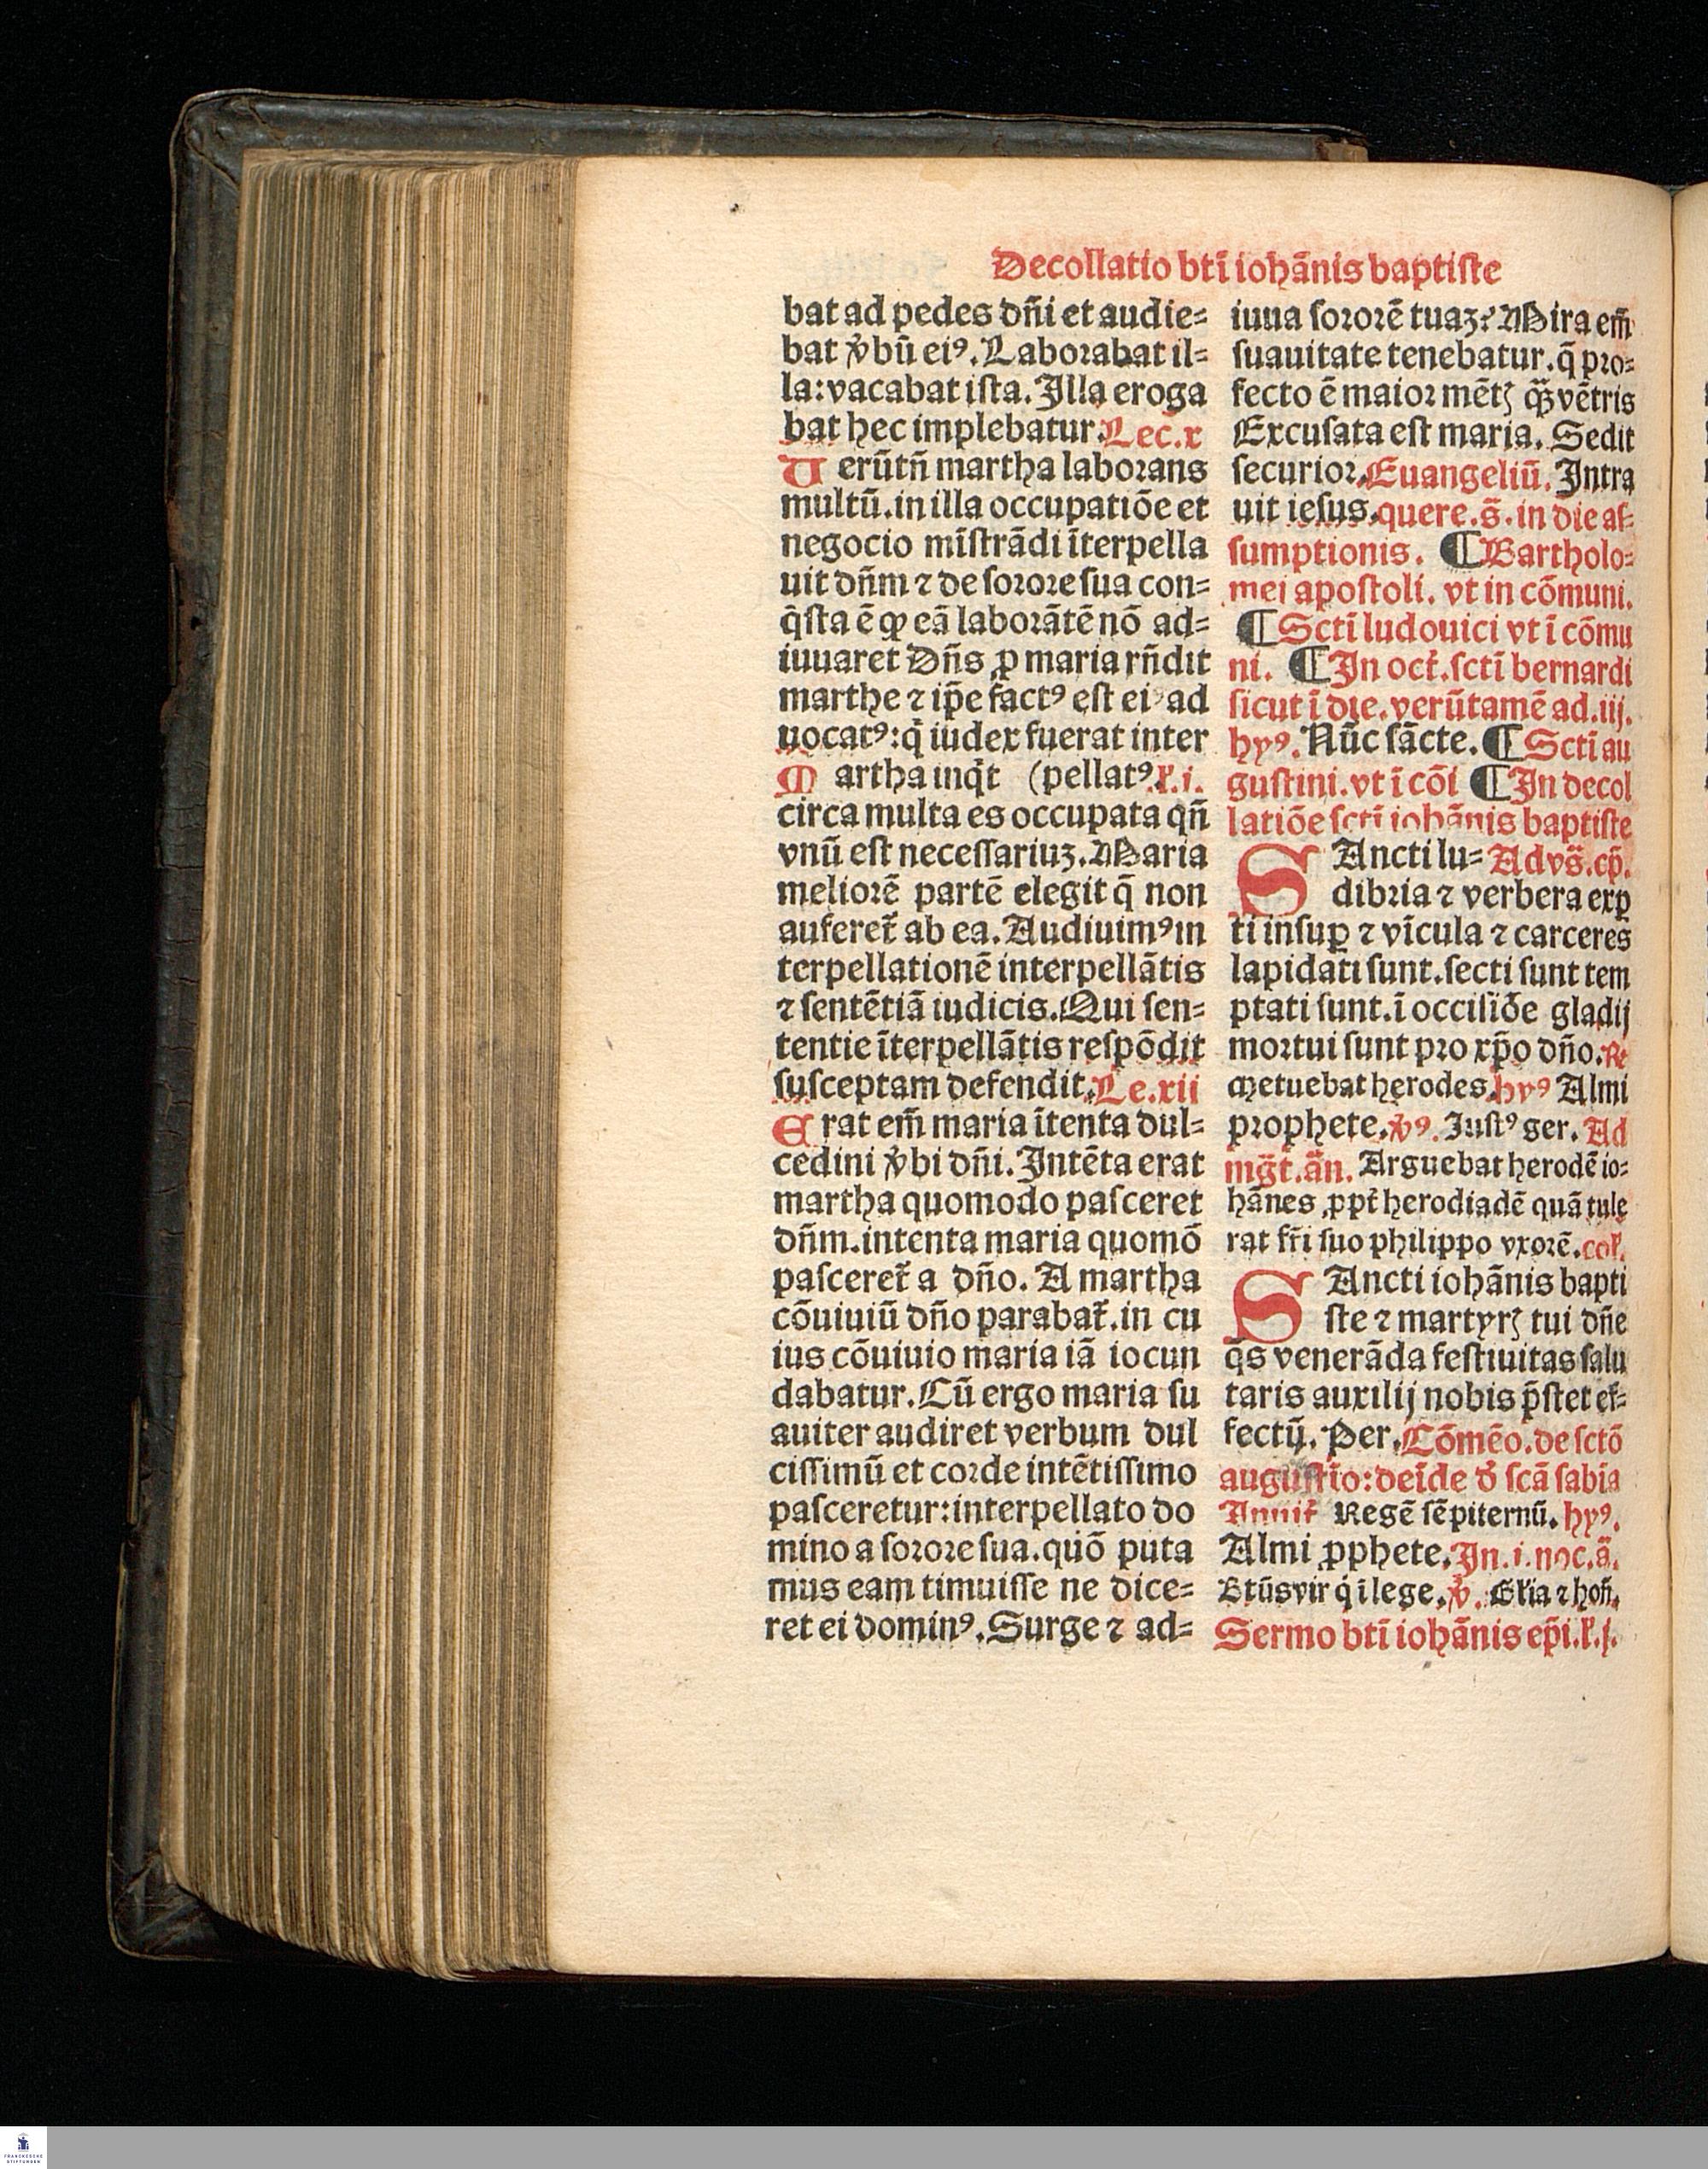 Decollatio btī iohānis baptiste
bat ad pedes dn̄i et audie=
bat v̾bū eiꝰ. Laborabat il=
la: vacabat ista. Illa eroga
bat hec implebatur. Lec. x
Uerūtn̄ martha laborans
multū. in illa occupatiōe et
negocio mīstrādi īterpella
uit dn̄m ⁊ de sorore sua con=
q̄sta ē ꝙ eā laborātē nō ad=
iuuaret Dn̄s ꝓ maria rn̄dit
marthe ⁊ ip̄e factꝰ est ei ad
uocatꝰ: q̇ iudex fuerat inter
Martha inq̇t (pellatꝰ. l̓. i.
circa multa es occupata qn̄
vnū est necessariuꝫ. Maria
meliorē partē elegit q̄ non
auferet̄ ab ea. Audiuimꝰ in
terpellationē interpellātis
⁊ sentētiā iudicis. Qui sen=
tentie īterpellātis respōdit
susceptam defendit. Le. xii
Erat em̄ maria ītenta dul=
cedini v̾bi dn̄i. Intēta erat
martha quomodo pasceret
dn̄m. intenta maria quomō
pasceret̄ a dn̄o. A martha
cōuiuiū dn̄o parabat̄. in cu
ius cōuiuio maria iā iocun
dabatur. Cū ergo maria su
auiter audiret verbum dul
cissimū et corde intētissimo
pasceretur: interpellato do
mino a sorore sua. quō puta
mus eam timuisse ne dice=
ret ei dominꝰ. Surge ⁊ ad=
iuua sororē tuaꝫ? Mira em̄
suauitate tenebatur. q̄ pro=
fecto ē maior mētꝭ qᷓꝫ vētris
Excusata est maria. Sedit
securior. Euangeliū. Intra
uit iesus. quere. s̄. in die as=
sumptionis. ¶ Bartholo=
mei apostoli. vt in cōmuni.
¶ Sctī ludouici vt ī cōmu
ni. ¶ In oct̄. sctī bernardi
sicut ī die. verūtamē ad. iij.
hyꝰ. Nūc sācte. ¶ Sctī au
gustini. vt ī cōi ¶ In decol
latiōe sctī iohānis baptiste
SAncti lu= Ad vs̄. cp̄.
dibria ⁊ verbera exꝑ
ti insuꝑ ⁊ vīcula ⁊ carceres
lapidati sunt. secti sunt tem
ptati sunt. ī occisiōe gladij
mortui sunt pro xp̄o dn̄o. ℞
Metuebat herodes. hyꝰ Almi
prophete. v̾ꝰ. Iustꝰ ger. Ad
mḡt. ān. Arguebat herodē io=
hānes ꝓpt̄ herodiadē quā tule
rat fr̄i suo philippo vxorē. col̓.
SAncti iohānis bapti
ste ⁊ martyrꝭ tui dn̄e
q̄s venerāda festiuitas salu
taris auxilij nobis p̄stet ef=
fectū. Per. Cōmēo. de sctō
augustīo: deīde d̾ scā sabīa
Inuit̄ Regē sēpiternū. hyꝰ.
Almi ꝓphete. In. i. noc. ā.
Btūs vir q̇ ī lege. v̾. Gl̓ia ⁊ hoñ.
Sermo btī iohānis ep̄i. l̓. j.
FRANCKESCHE
STIFTUNGEN